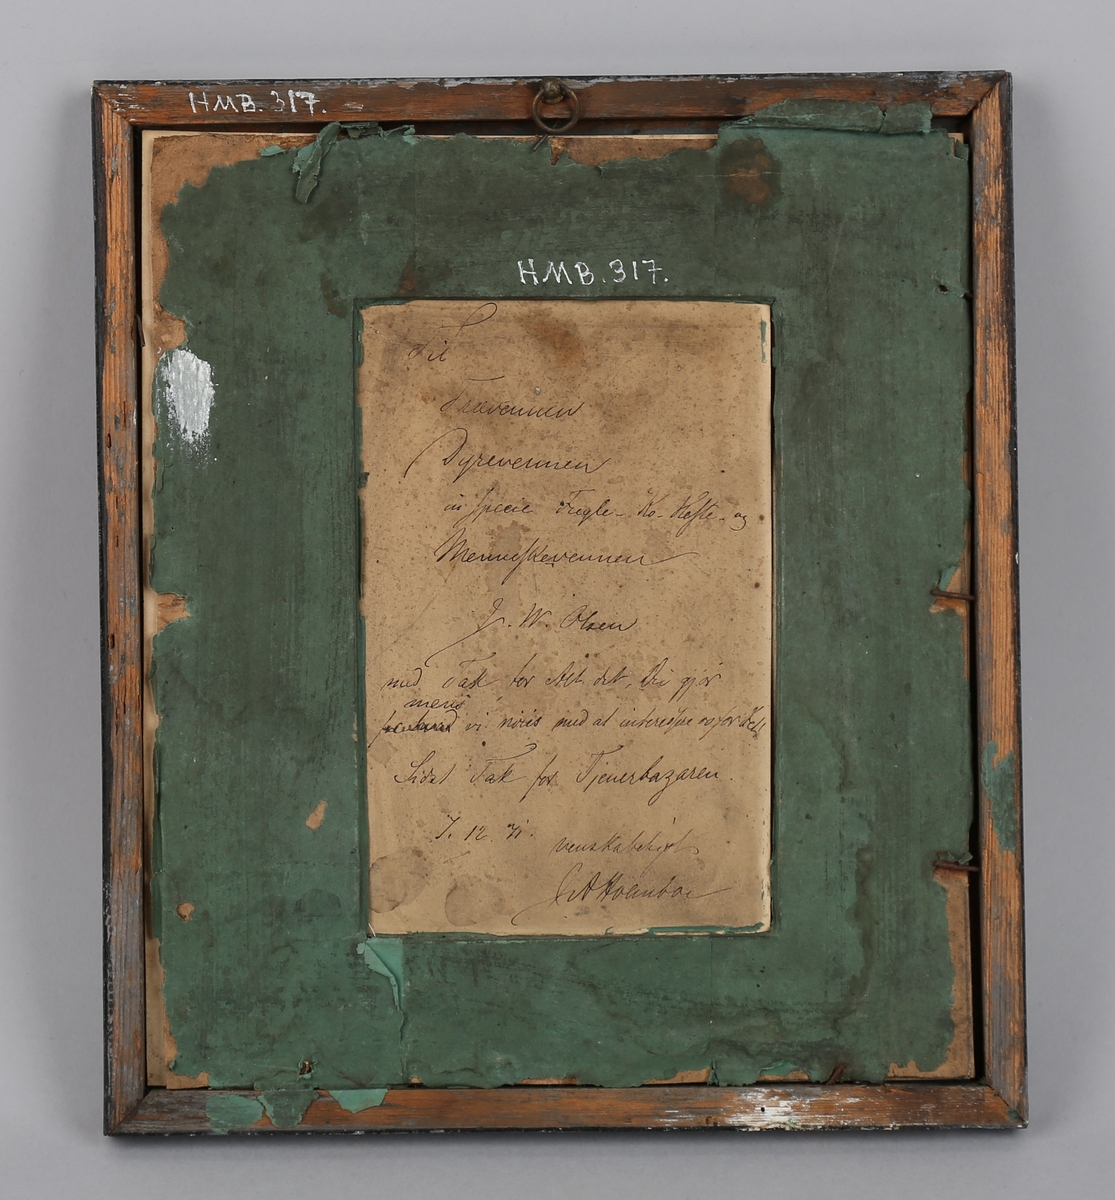 HMB. 317.
HMB. 317.
Til
Trævennen
Dyrevennen
in specie Fugle- Ko- Heste- og
Menneskevennen
J. W. Olsen
med Tak for Alt det, De gjør
mens
vi nøies med at interesse os for det
Sidst Tak for Tjenerbazaren.
7. 12. 71.
venskabeligst